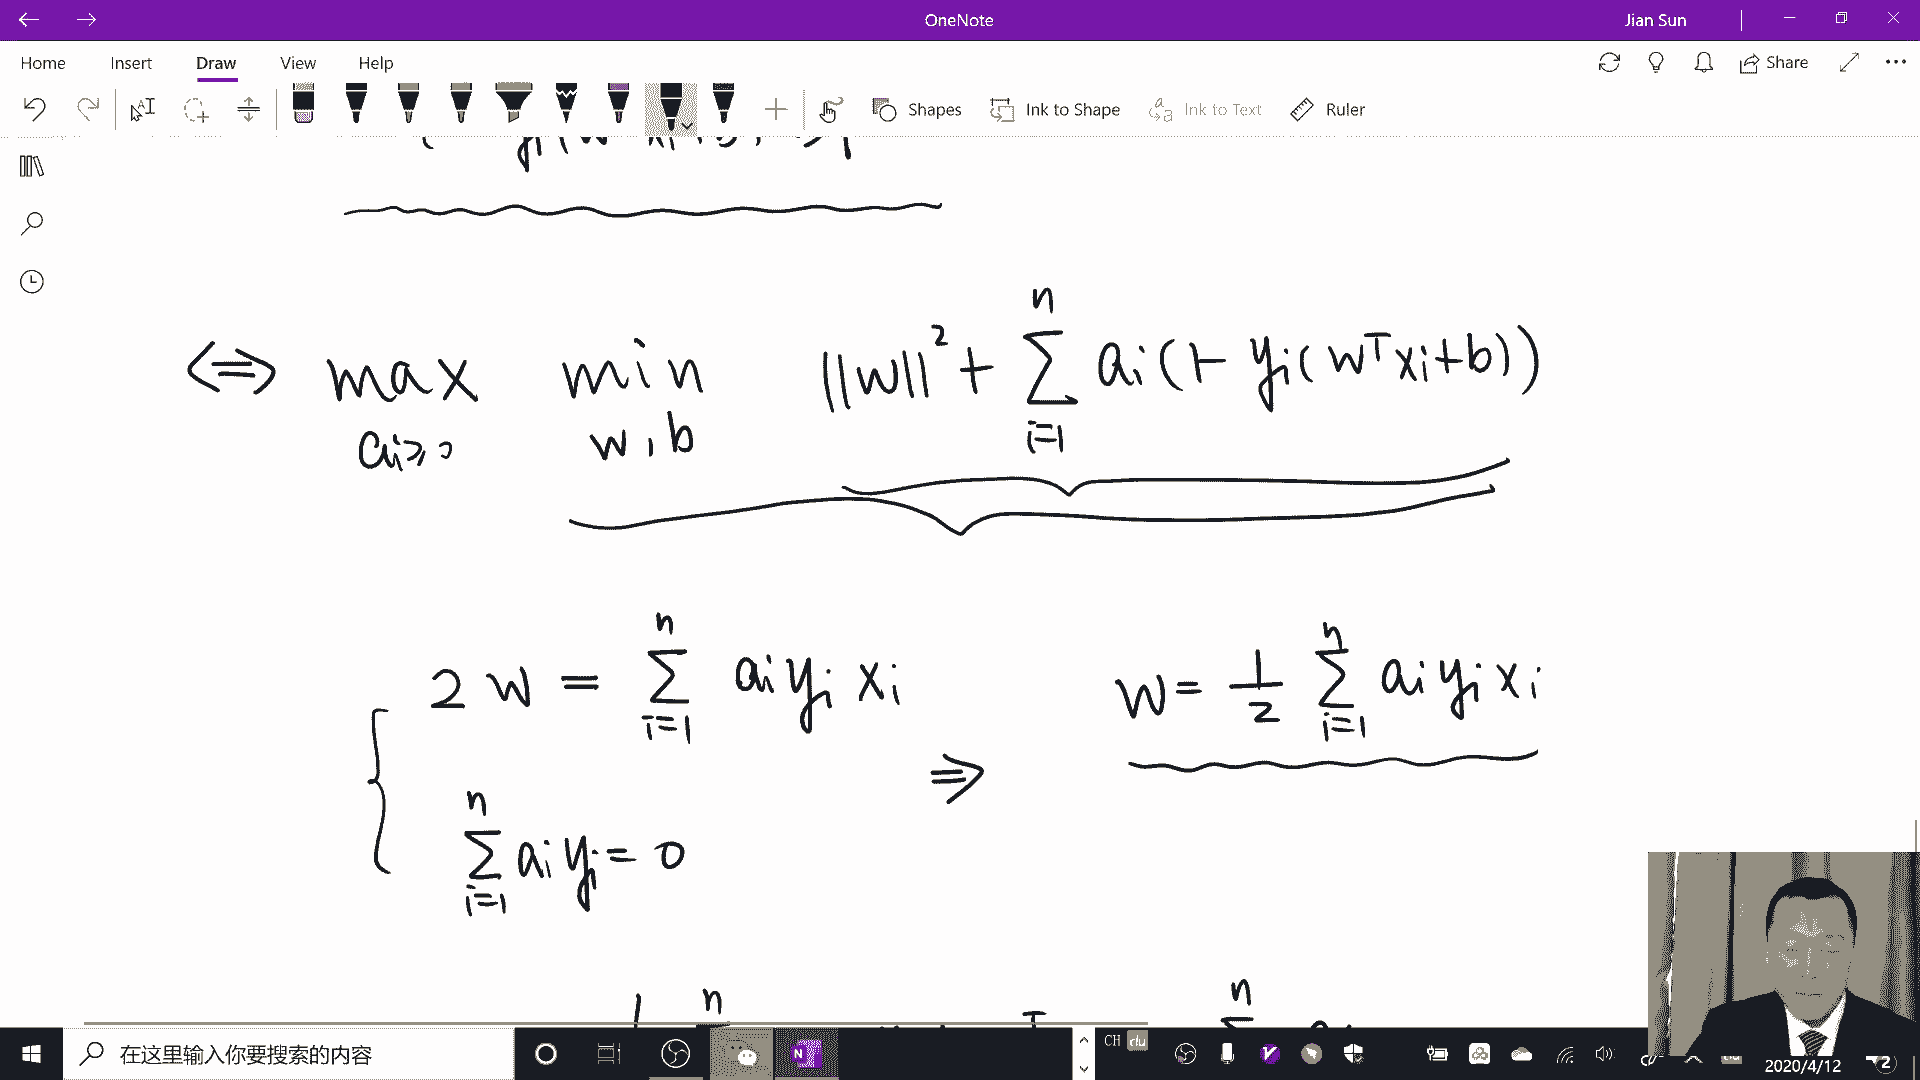 OneNote
Jian Sun
Home Insert Draw View Help
Share
Shapes Ink to Shape Ink to Text Ruler
⟺ max min ||w||² + Σ aᵢ(1 - yᵢ(wᵀxᵢ+b))
aᵢ≥0 w, b i=1 n
2w = Σ aᵢyᵢxᵢ
n i=1
⇒ w = 1/2 Σ aᵢyᵢxᵢ
n i=1
Σ aᵢyᵢ = 0
n i=1
n n
在这里输入你要搜索的内容
CH
2020/4/12
2